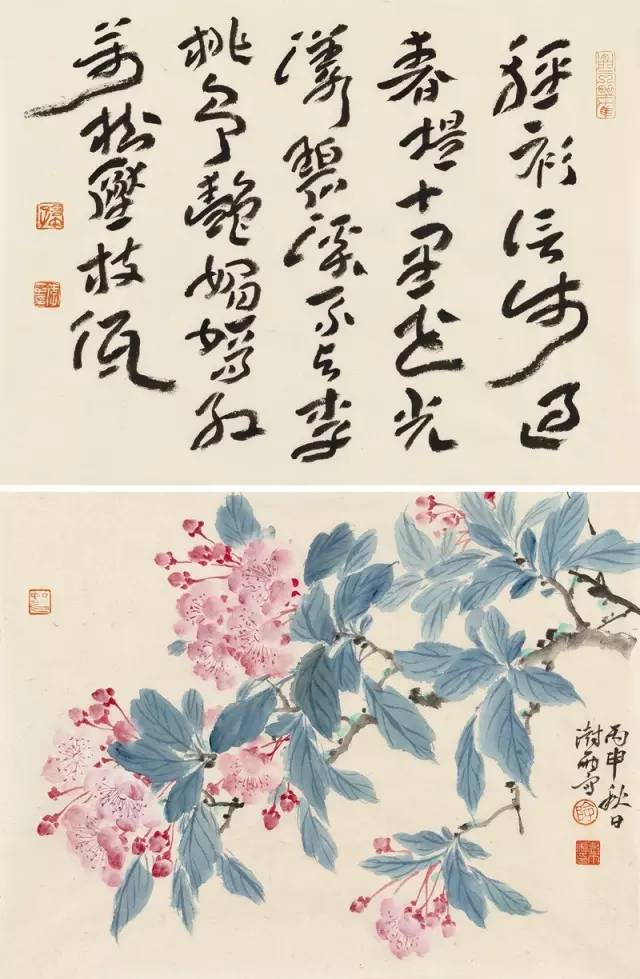 輕衫信步過
春堤十里花光
漾碧溪不與李
桃爭艷媚嫣紅
萬樹壓枝低
丙申秋日
澍雨写